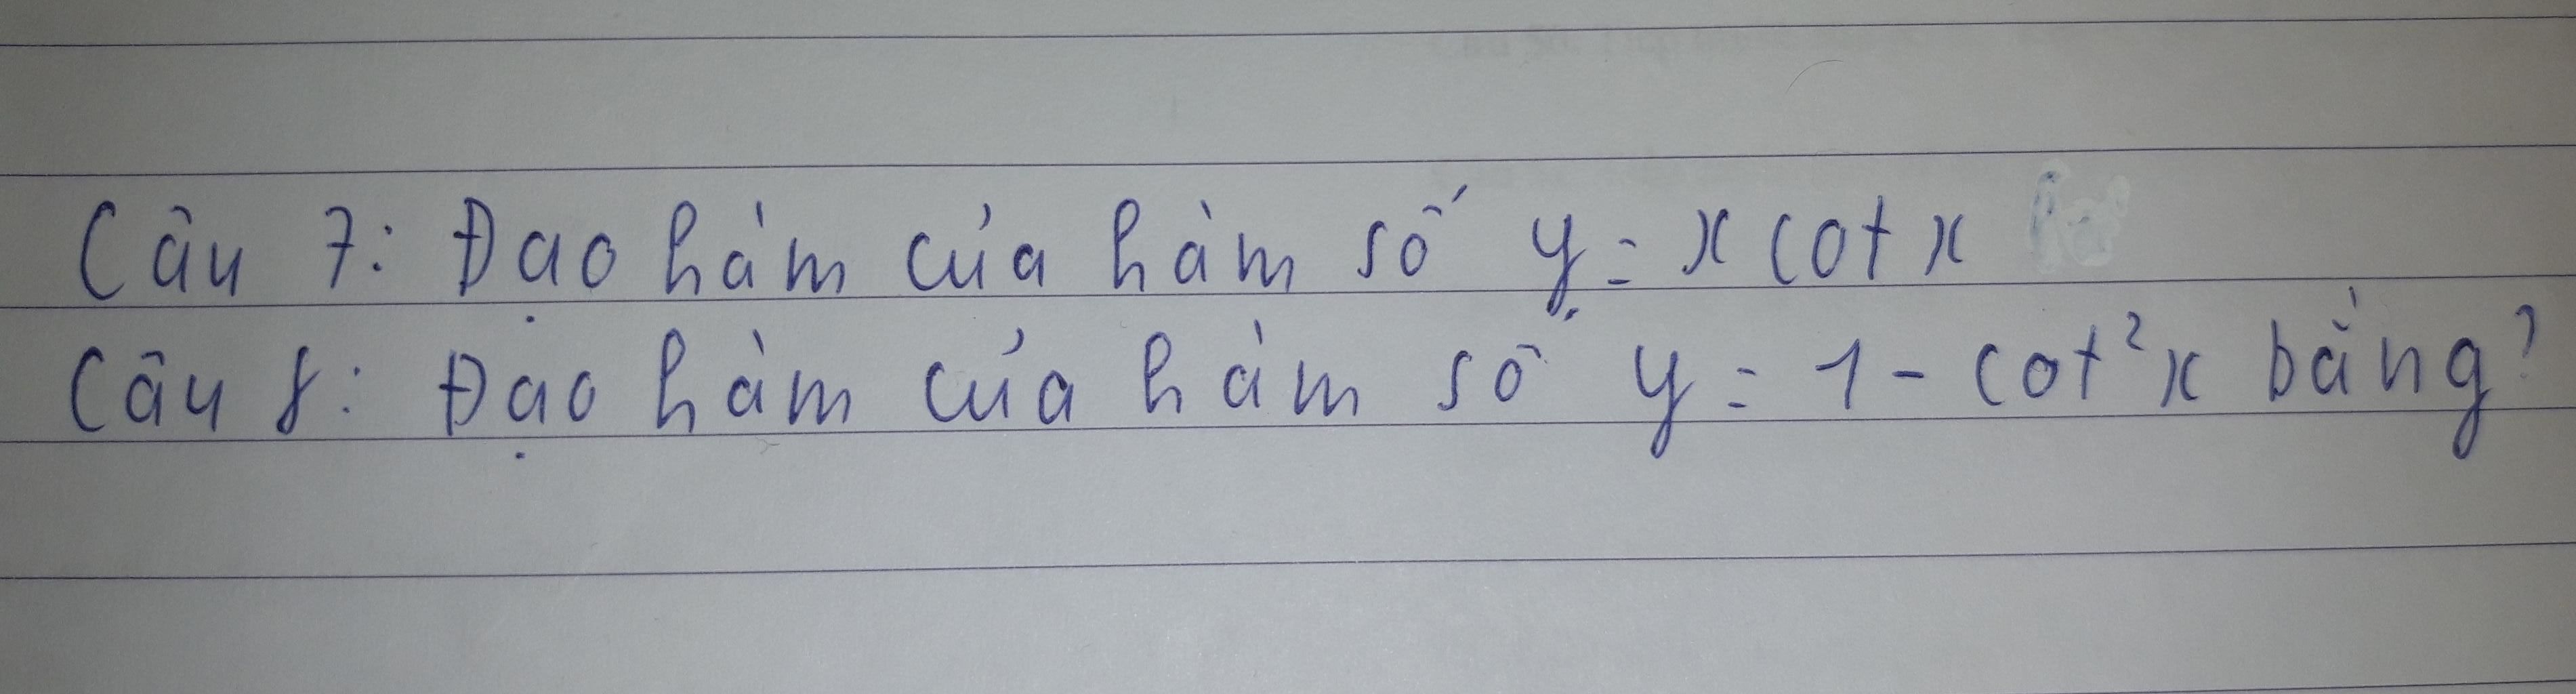 Câu 7: Đạo hàm của hàm số y = x cot x
Câu 8: Đạo hàm của hàm số y = 1 - cot²x bằng?